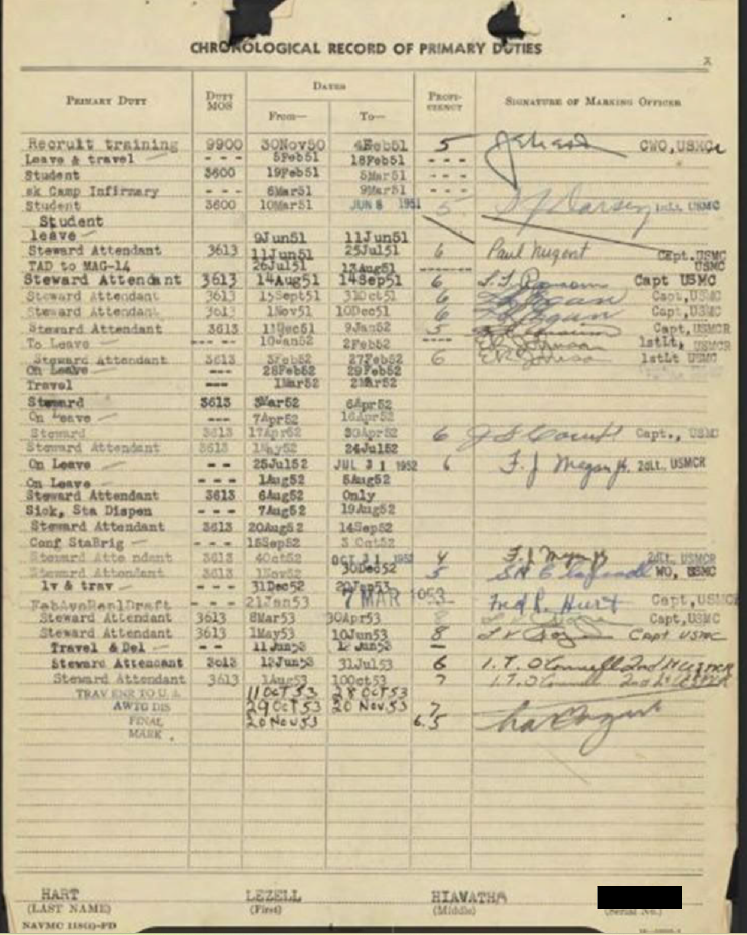 CHRONOLOGICAL RECORD OF PRIMARY DUTIES
X
PRIMARY DUTY DUTY MOS DATES PROFI- CIENCY SIGNATURE OF MARKING OFFICER
From— To—
Recruit training 9900 30Nov50 4Feb51 5 CWO, USMC
Leave & travel - - - 5Feb51 18Feb51 - - -
Student 3600 19Feb51 5Mar51
sk Camp Infirmary - - - 6Mar51 9Mar51 - - -
Student 3600 10Mar51 JUN 8 1951 5 1stLt USMC
Student
leave 9Jun51 11Jun51
Steward Attendant 3613 11Jun51 25Jul51 6 Paul Nugent Capt. USMC
TAD to MAG-14 26Jul51 13Aug51 ------ USMC
Steward Attendant 3613 14Aug51 14Sep51 6 Capt USMC
Steward Attendant 3613 15Sept51 31Oct51 6 Capt, USMC
Steward Attendant 3613 1Nov51 10Dec51 6 Capt, USMC
Steward Attendant 3613 11Dec51 9Jan52 5 Capt, USMCR
To Leave - - - - 10Jan52 2Feb52 ---- 1stLt, USMCR
Steward Attendant 3613 3Feb52 27Feb52 6 1stLt USMC
On Leave --- 28Feb52 29Feb52
Travel --- 1Mar52 2Mar52
Steward 3613 3Mar52 6Apr52
On Leave --- 7Apr52 16Apr52
Steward 3613 17Apr52 30Apr52 6 Capt., USMC
Steward Attendant 3613 1May52 24Jul52
On Leave - - 25Jul52 JUL 31 1952 6 2dLt. USMCR
On Leave - - - 1Aug52 5Aug52
Steward Attendant 3613 6Aug52 Only
Sick, Sta Dispen - - 7Aug52 19Aug52
Steward Attendant 3613 20Aug52 14Sep52
Conf StaBrig - - - 15Sep52 3 Oct52
Steward Atte ndant 3613 4Oct52 OCT 31 1952 4 2dLt. USMCR
Steward Attendant 3613 1Nov52 30Dec52 5 WO, USMC
lv & trav - - - 31Dec52 20Jan53
21Jan53 7 MAR 1953 Fred R. Hurt Capt, USMC
Steward Attendant 3613 8Mar53 30Apr53 8 Capt, USMC
Steward Attendant 3613 1May53 10Jun53 8 Capt USMC
Travel & Del - - 11Jun53 12Jun53
Steward Attendant 3613 13Jun53 31Jul53 6 I. T. O'Connell 2nd Lt USMCR
Steward Attendant 3613 1Aug53 10Oct53 7 I. T. O'Connell 2nd Lt USMCR
TRAV ENR TO U.S. 11 OCT 53 28 OCT 53
AWTG DIS 29 OCT 53 20 NOV 53 7
FINAL 20 NOV 53 6.5
MARK .
HART LEZELL HIAWATHA
(LAST NAME) (First) (Middle) (Serial No.)
NAVMC 118(3)-PD